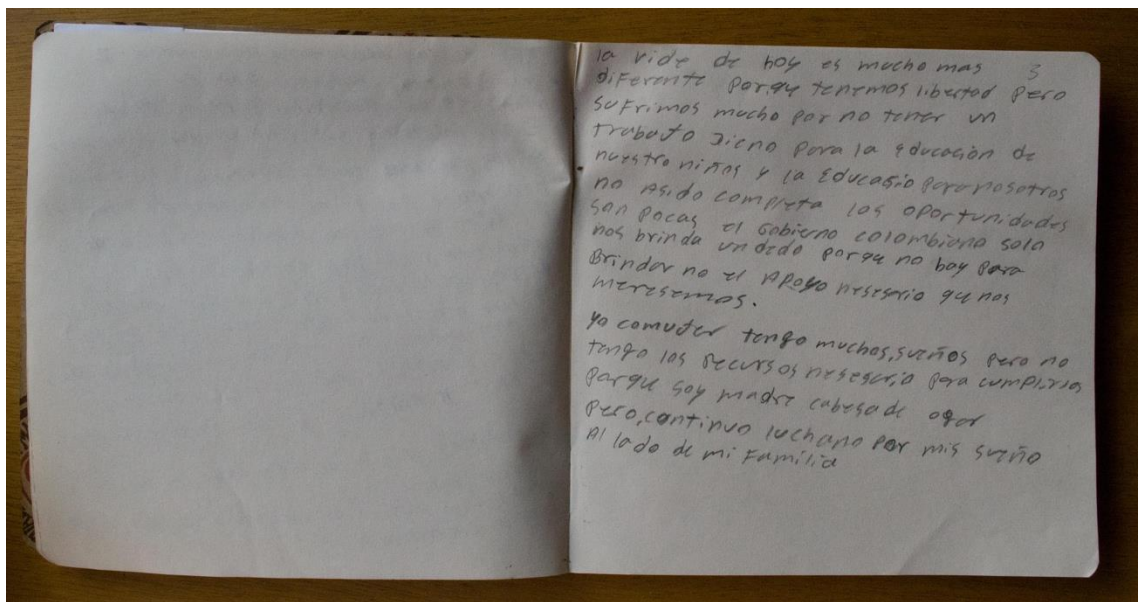 3
la vida de hoy es mucho mas
diferente porque tenemos libertad pero
sufrimos mucho por no tener un
trabajo Dicno para la educación de
nuestro niños y la Educasio para nosotros
no Asido completa las oportunidades
son pocas el Gobierno colombiano solo
nos brinda un dedo porque no hay para
Brindar no el Apoyo nesesario que nos
meresemos.
Yo comujer tengo muchos, sueños pero no
tengo los recursos nesesario para cumplirlos
porque soy madre cabesa de ogar
pero, continuo luchano por mis sueño
Al lado de mi Familia